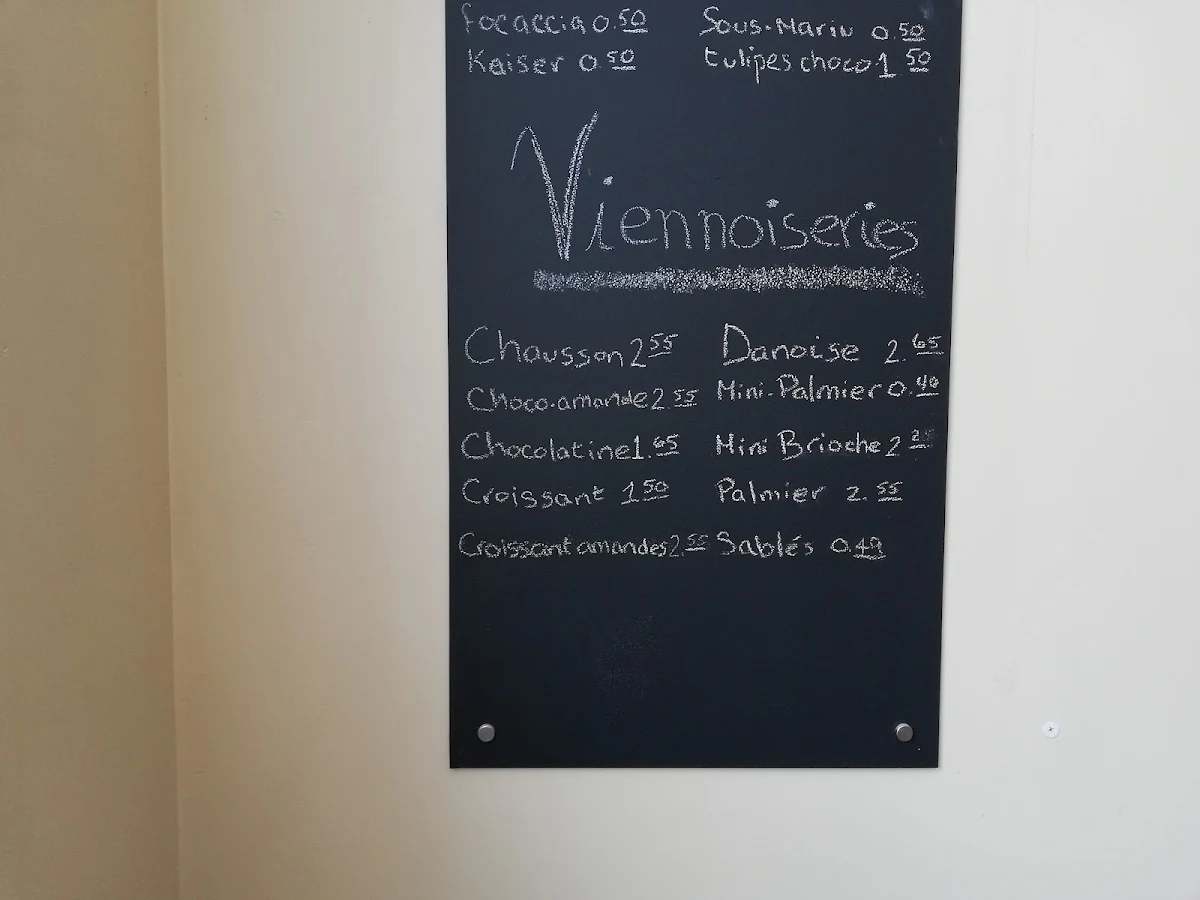 Focaccia 0.50 Sous-Marin 0.50
Kaiser 0.50 tulipes choco 1.50
Viennoiseries
Chausson 2.55 Danoise 2.65
Choco-amande 2.55 Mini-Palmier 0.40
Chocolatine 1.65 Mini Brioche 2
Croissant 1.50 Palmier 2.55
Croissant amandes 2.55 Sablés 0.49